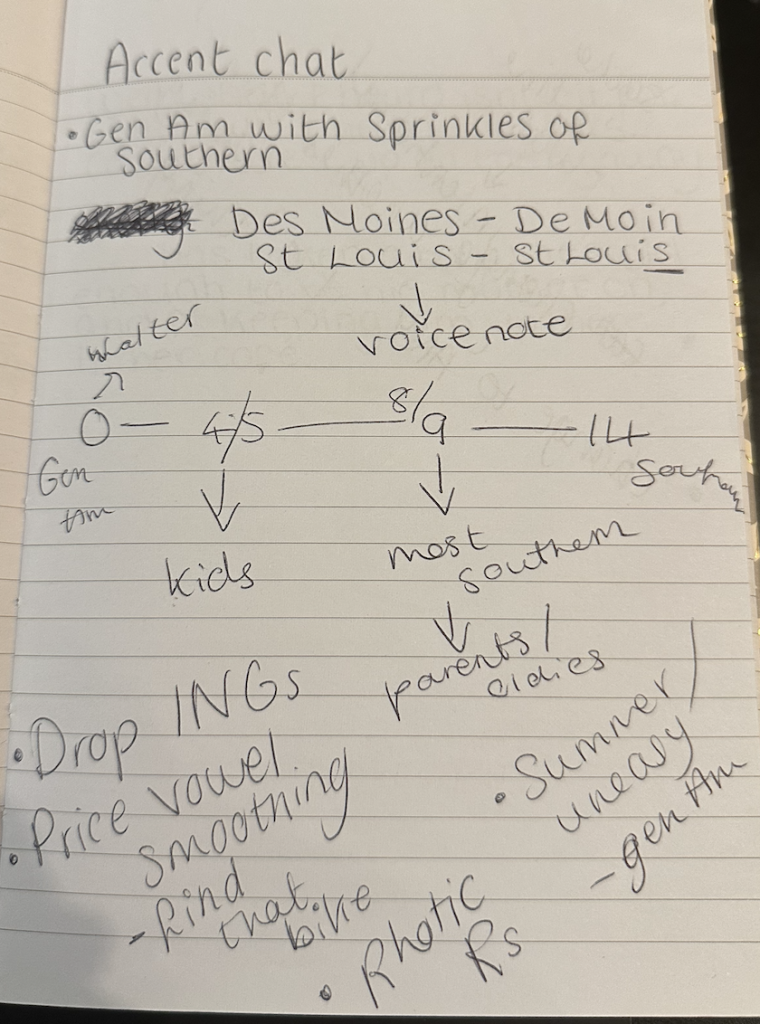 Accent chat
• Gen Am with Sprinkles of
Southern
Des Moines - De Moin
St Louis - St Louis
↓
voice note
Walter
↗
0 — 4/5 —— 8/9 —— 14
Gen
Am
Southern
↓ ↓
kids
most
southern
↓
parents/
oldies
• Drop INGs
• Price vowel
smoothing
- find
that bike
• Rhotic
Rs
• Summer/
uneasy
- gen Am